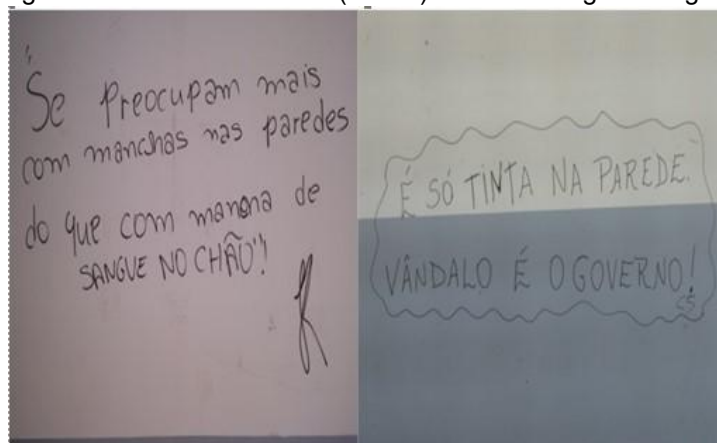 Se Preocupam mais
com manchas nas paredes
do que com manch de
SANGUE NO CHÃO"!
É SÓ TINTA NA PAREDE.
VÂNDALO É O GOVERNO!